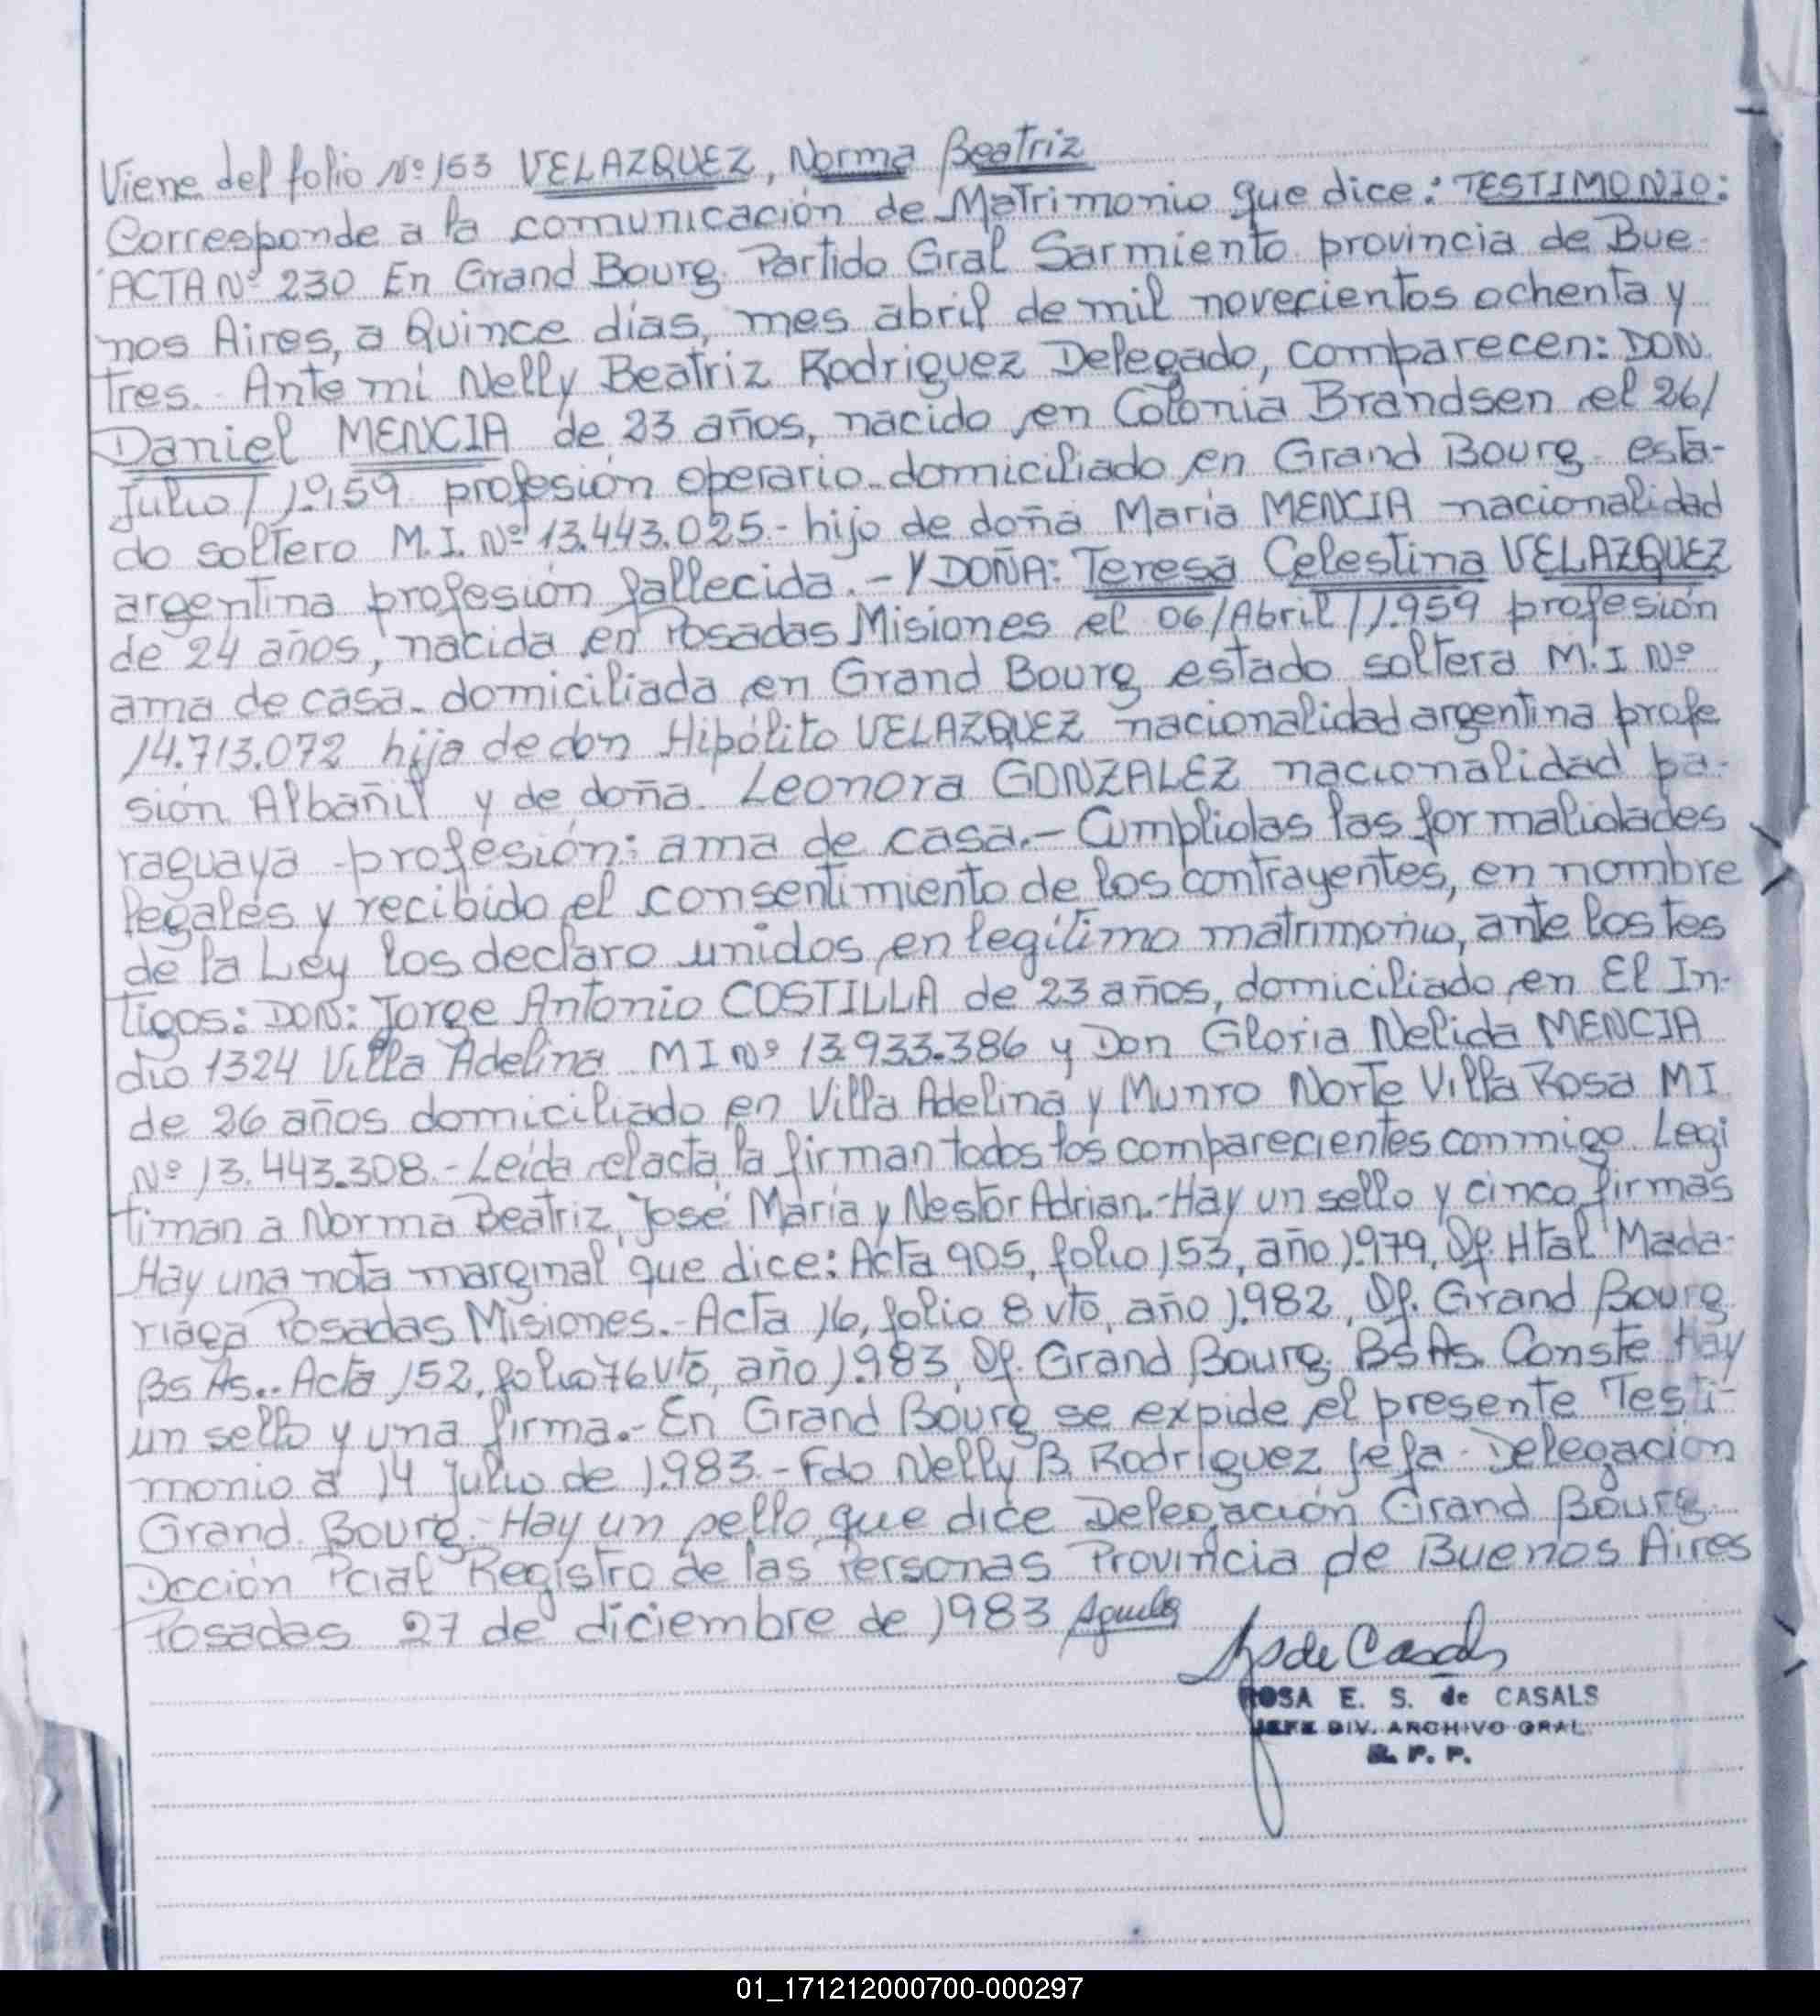 Viene del folio Nº 153 VELAZQUEZ, Norma Beatriz
Corresponde a la comunicación de Matrimonio que dice: TESTIMONIO:
ACTA Nº 230 En Grand Bourg Partido Gral Sarmiento provincia de Bue-
nos Aires, a Quince días, mes abril de mil novecientos ochenta y
tres. Ante mi Nelly Beatriz Rodriguez Delegado, comparecen: DON
Daniel MENCIA de 23 años, nacido en Colonia Brandsen el 26/
Julio/ 1.959 profesión operario domiciliado en Grand Bourg esta-
do soltero M.I. Nº 13.443.025.- hijo de doña Maria MENCIA nacionalidad
argentina profesión fallecida.- Y DOÑA: Teresa Celestina VELAZQUEZ
de 24 años, nacida en Posadas Misiones el 06/Abril/1.959 profesión
ama de casa. domiciliada en Grand Bourg estado soltera M.I Nº
14.713.072 hija de don Hipólito VELAZQUEZ nacionalidad argentina profe
sión Albañil y de doña Leonora GONZALEZ nacionalidad pa-
raguaya profesión: ama de casa.- Cumplidas las formalidades
legales y recibido el consentimiento de los contrayentes, en nombre
de la Ley los declaro unidos en legítimo matrimonio, ante los tes
tigos: DON: Jorge Antonio COSTILLA de 23 años, domiciliado en El In-
dio 1324 Villa Adelina MI Nº 13.933.386 y Don Gloria Nelida MENCIA
de 26 años domiciliado en Villa Adelina y Munro Norte Villa Rosa MI
Nº 13.443.308.- Leída el acta la firman todos los comparecientes conmigo. Legi
timan a Norma Beatriz, José María y Nestor Adrian.- Hay un sello y cinco firmas
Hay una nota marginal que dice: Acta 905, folio 153, año 1.979, Of. Htal Mada-
riaga Posadas Misiones.- Acta 16, folio 8 vto, año 1.982, Of. Grand Bourg
Bs As.. Acta 152, folio 76 vto, año 1.983, Of. Grand Bourg. Bs As. Conste Hay
un sello y una firma.- En Grand Bourg se expide el presente Testi-
monio a 14 julio de 1.983.- Fdo Nelly B. Rodríguez Jefa Delegación
Grand Bourg.- Hay un sello que dice Delegación Grand Bourg
Dcción Pcial Registro de las Personas Provincia de Buenos Aires
Posadas 27 de diciembre de 1983
de Casals
ROSA E. S. de CASALS
JEFE DIV. ARCHIVO GRAL.
R. P. P.
01_171212000700-000297